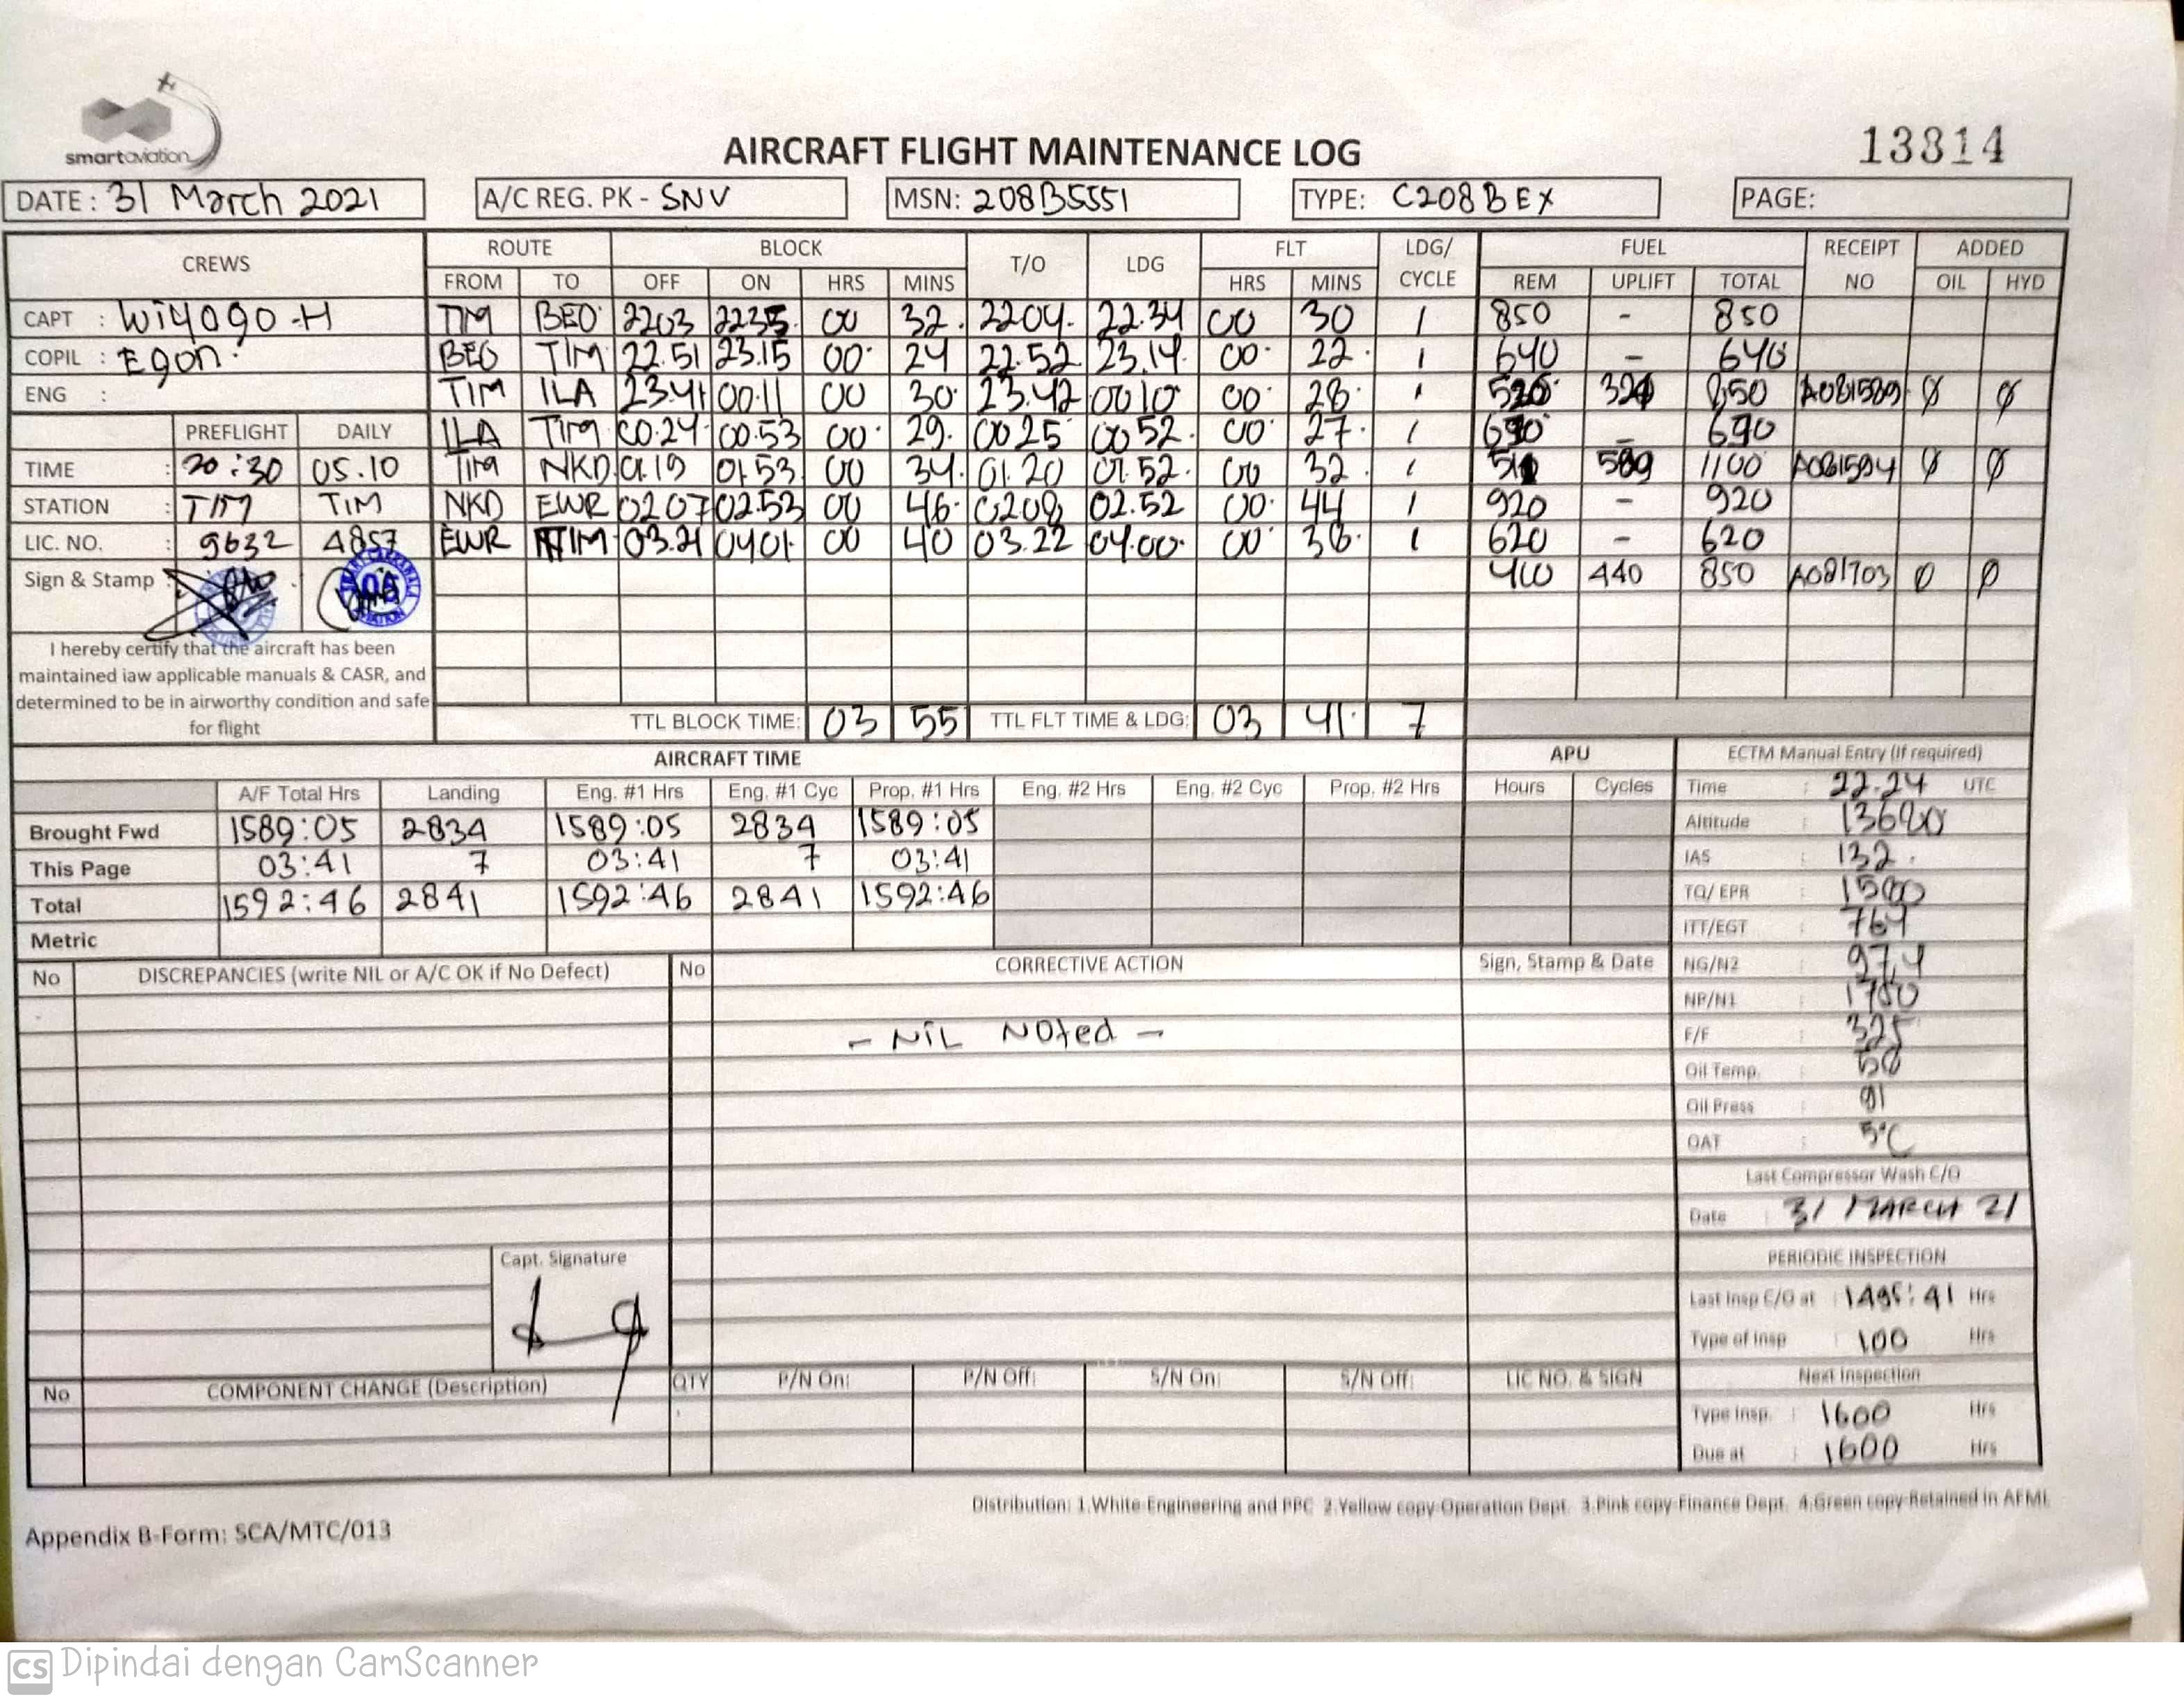 smartaviation
AIRCRAFT FLIGHT MAINTENANCE LOG
13814
DATE : 31 March 2021 A/C REG. PK - SNV MSN: 208B5551 TYPE: C208B EX PAGE:
CREWS ROUTE BLOCK T/O LDG FLT LDG/ CYCLE FUEL RECEIPT NO ADDED
FROM TO OFF ON HRS MINS HRS MINS REM UPLIFT TOTAL OIL HYD
CAPT : Wiyogo -H TIM BEO 2203 2235 00 32 2204 22.34 00 30 1 850 - 850
COPIL : Egon BEO TIM 22.51 23.15 00 24 22.52 23.14 00 22 1 640 - 640
ENG : TIM ILA 23.41 00.11 00 30 23.42 0010 00 28 1 850 Ø Ø
PREFLIGHT DAILY ILA TIM 00.24 00.53 00 29 0025 0052 00 27 1 690 - 690
TIME : 20:30 05.10 TIM NKD 01.19 01.53 00 34 01.20 01.52 00 32 1 1100 Ø Ø
STATION : TIM TIM NKD EWR 0207 02.53 00 46 0208 02.52 00 44 1 920 - 920
LIC. NO. : 9632 4857 EWR TIM 03.21 0401 00 40 03.22 04.00 00 38 1 620 - 620
Sign & Stamp : 440 850 A081703 Ø Ø
I hereby certify that the aircraft has been
maintained iaw applicable manuals & CASR, and
determined to be in airworthy condition and safe
for flight
TTL BLOCK TIME: 03 55 TTL FLT TIME & LDG: 03 41 7
AIRCRAFT TIME APU ECTM Manual Entry (If required)
A/F Total Hrs Landing Eng. #1 Hrs Eng. #1 Cyc Prop. #1 Hrs Eng. #2 Hrs Eng. #2 Cyc Prop. #2 Hrs Hours Cycles Time : 22.24 UTC
Brought Fwd 1589:05 2834 1589:05 2834 1589:05 Altitude :
This Page 03:41 7 03:41 7 03:41 IAS : 132
Total 1592:46 2841 1592:46 2841 1592:46 TQ/ EPR : 1500
Metric ITT/EGT : 764
No DISCREPANCIES (write NIL or A/C OK if No Defect) No CORRECTIVE ACTION Sign, Stamp & Date NG/N2 : 97,4
NP/N1 : 1750
- NiL Noted - F/F : 325
Oil Temp. : 58
Oil Press : 91
OAT : 5°C
Last Compressor Wash C/O
Date : 31 MARCH 21
Capt. Signature PERIODIC INSPECTION
Last Insp C/O at : 1495:41 Hrs
Type of Insp : 100 Hrs
No COMPONENT CHANGE (Description) QTY P/N On: P/N Off: S/N On: S/N Off: LIC NO. & SIGN Next Inspection
Type Insp. : 1600 Hrs
Due at : 1600 Hrs
Distribution: 1.White-Engineering and PPC 2.Yellow copy-Operation Dept. 3.Pink copy-Finance Dept. 4.Green copy-Retained in AFML
Appendix B-Form: SCA/MTC/013
CS Dipindai dengan CamScanner